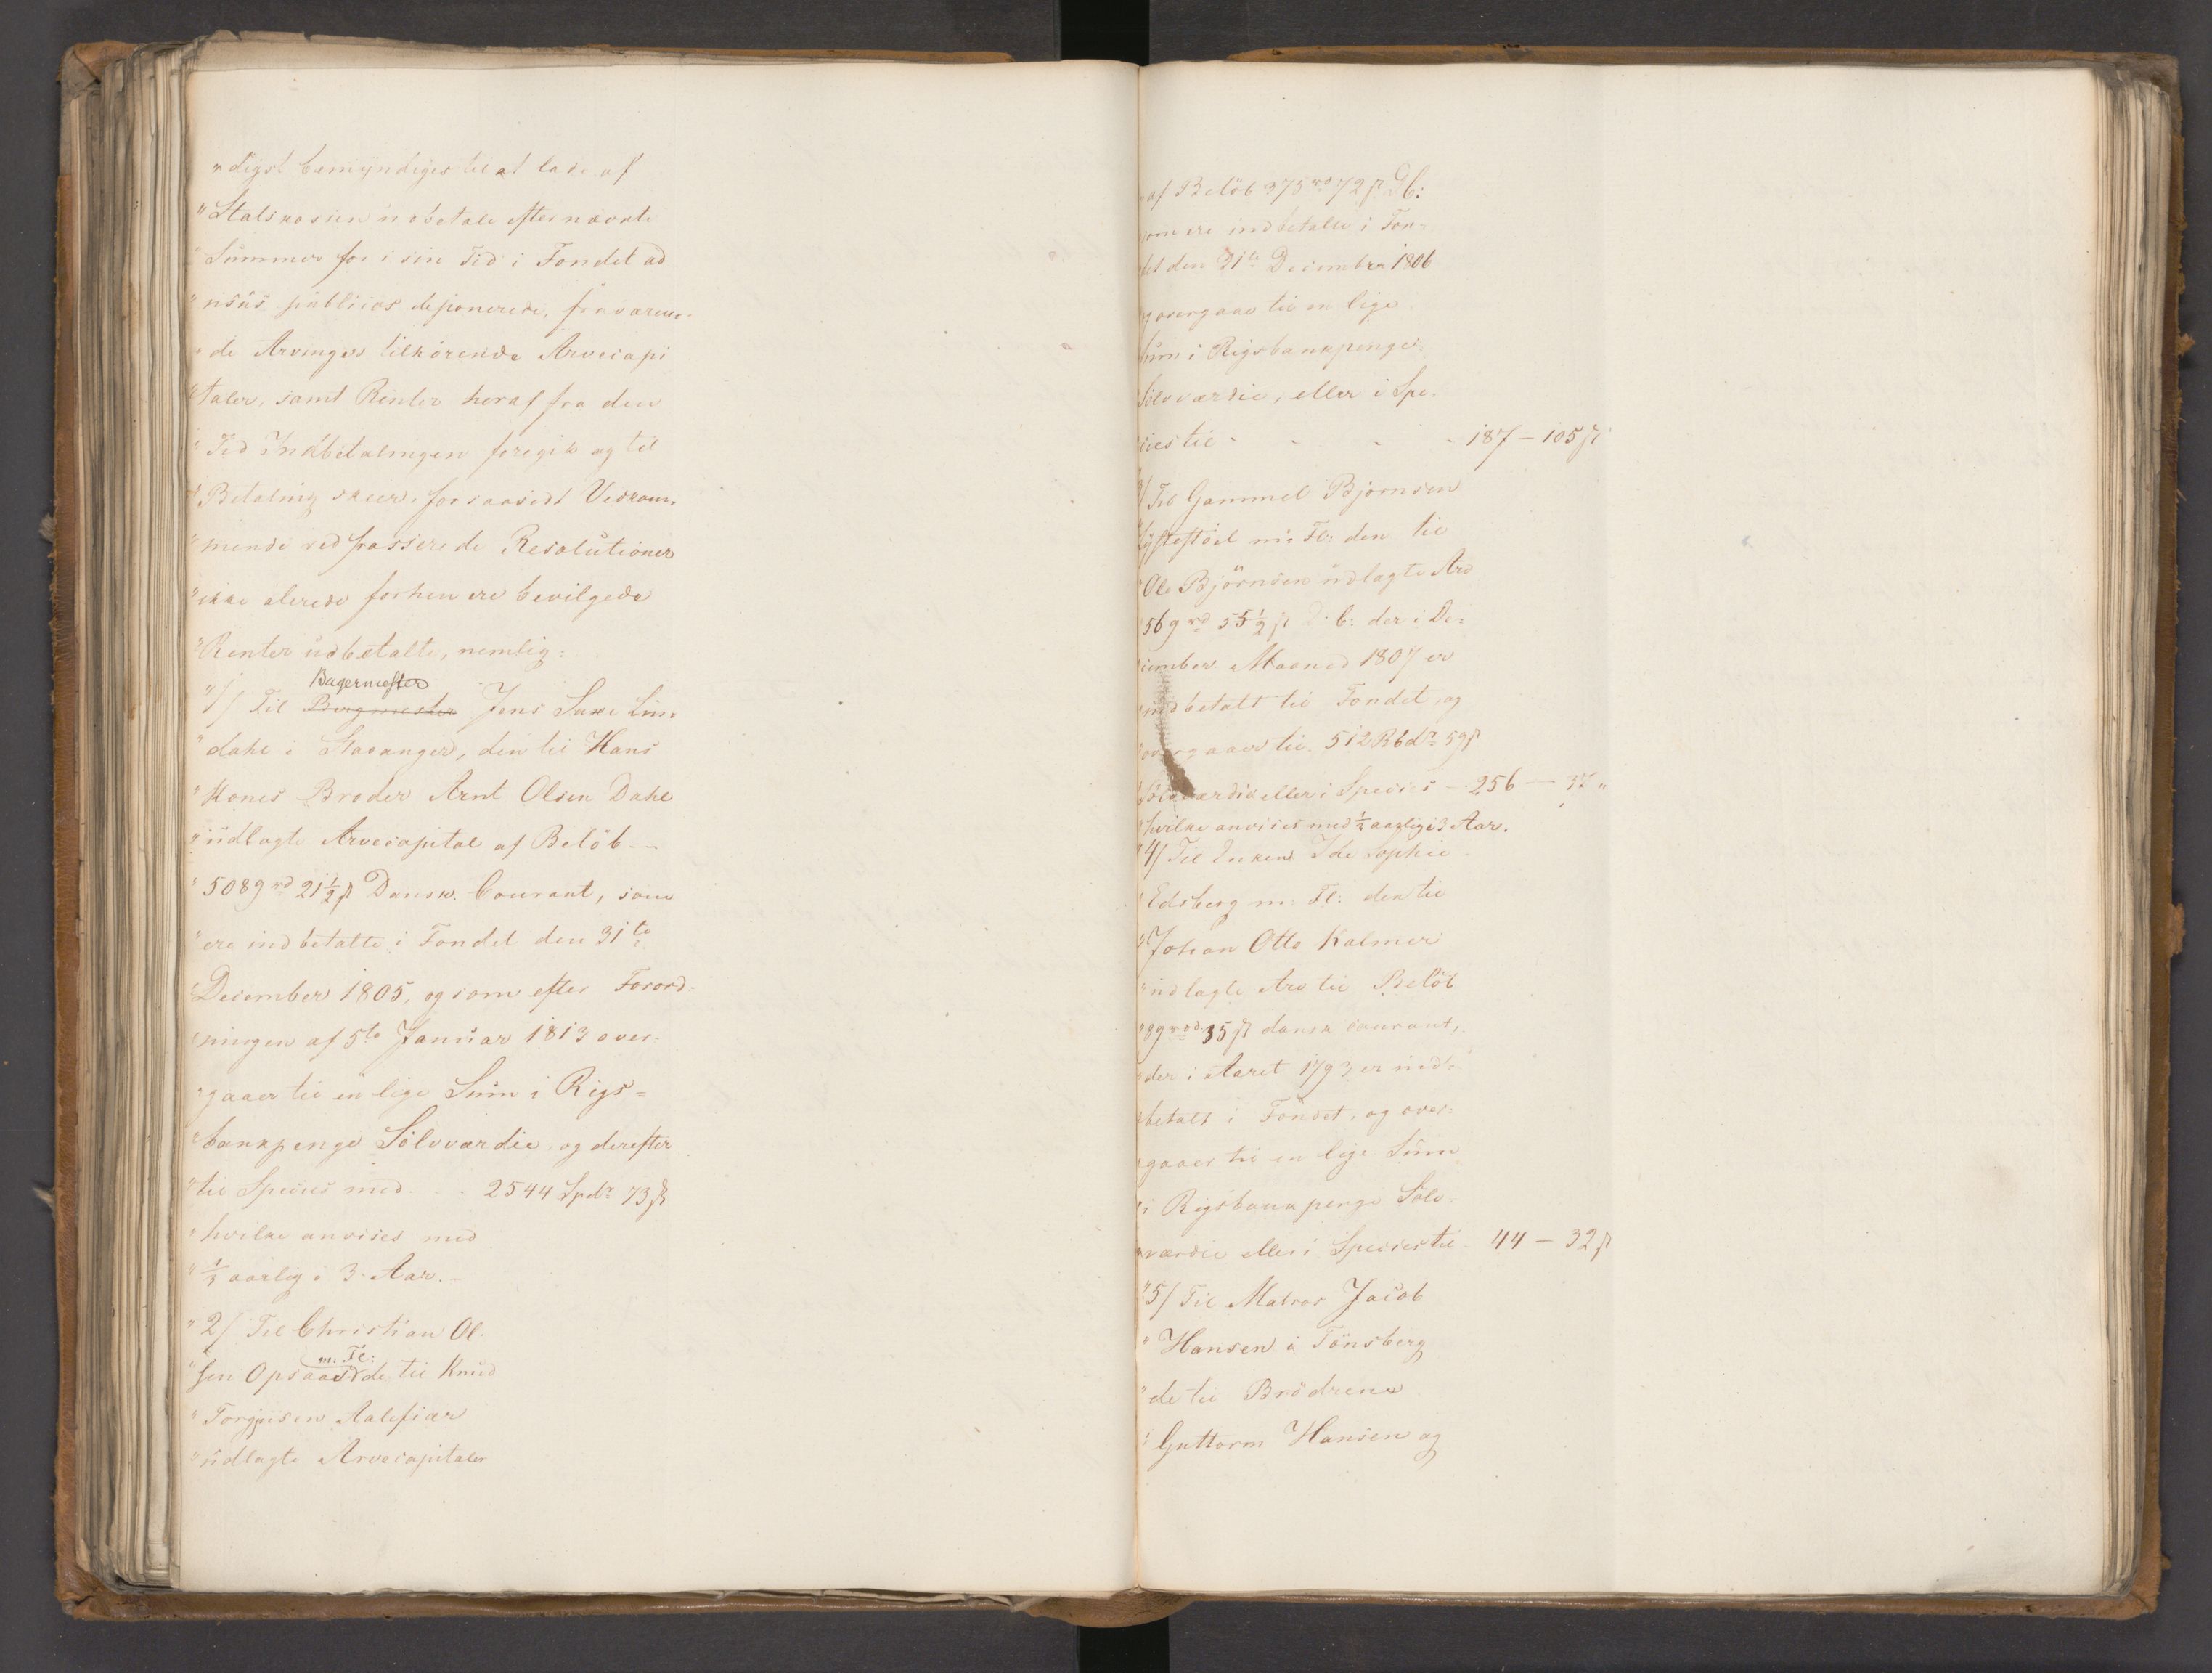 "digst bemyndiges til at lade af
"Statskassen udbetale efternævnte
"Summer for i sin Tid i Fondet ad
"usus publicos deponerede, fraværen-
"de Arvinger tilhörende Arvecapi
"taler, samt Renter heraf fra den
"Tid Indbetalingen foregik og til
"Betaling skeer, forsaavidt Vedkom-
"mende ved passerede Resolutioner
"ikke allerede forhen ere bevilgede
"Renter udbetalte, nemlig:
Bagermester
"1/ Til Bergmester Jens Saxe Lin
"dahl i Stavanger, den til Hans
"Kones Broder Arnt Olsen Dahl
"udlagte Arvecapital af Belöb --
"5089 rd 21½ ß Dansk Courant, som
"ere indbetalte i Fondet den 31te
"December 1805, og som efter Forord-
"ningen af 5te Januar 1813 over-
"gaaer til en lige Sum i Rigs=
"bankpenge Sölvværdie, og derefter
"til Species med . . 2544 Spdr 73 ß
"hvilke anvises med
"⅓ aarlig i 3 Aar.-
"2/ Til Christian Ol-
m: Fl:
"sen Opsaa de til Knud
"Torgiusen
"udlagte Arvecapitaler
"af Belöb 375 rd 72 ß DC:
som ere indbetalte i Fon-
det den 31te December 1806
og overgaaer til en lige
Sum i Rigsbankpenge
Sölvværdie, eller i Spe-
cies til - - - - 187 - 105 ß
3/ Til Gammel Bjørnsen
m: Fl: den til
"Ole Björnsen udlagte Arv
"569 rd 55½ ß D: C: der i De-
cember Maaned 1807 er
indbetalt til Fondet, og
overgaaer til 512 Rbdr 59 ß
Sölvværdie eller i Species - 256 - 37 "
"hvilke anvises med ⅓ aarlig i 3 Aar.
"4/ Til Enken Ide Sophie
"Edsberg m: Fl: den til
"Johan Otto Kalmer
"udlagte Arv til Belöb
"89 rd 35 ß dansk courant,
"der i Aaret 1793 er ind-
"betalt i Fondet, og over-
"gaaer til en lige Sum
"i Rigsbankpenge Sölv-
"værdie eller i Species til - 44 - 32 ß
"5/ Til Matros Jacob
"Hansen i Tönsberg
"de til Brödrene
"Guttorm Hansen og